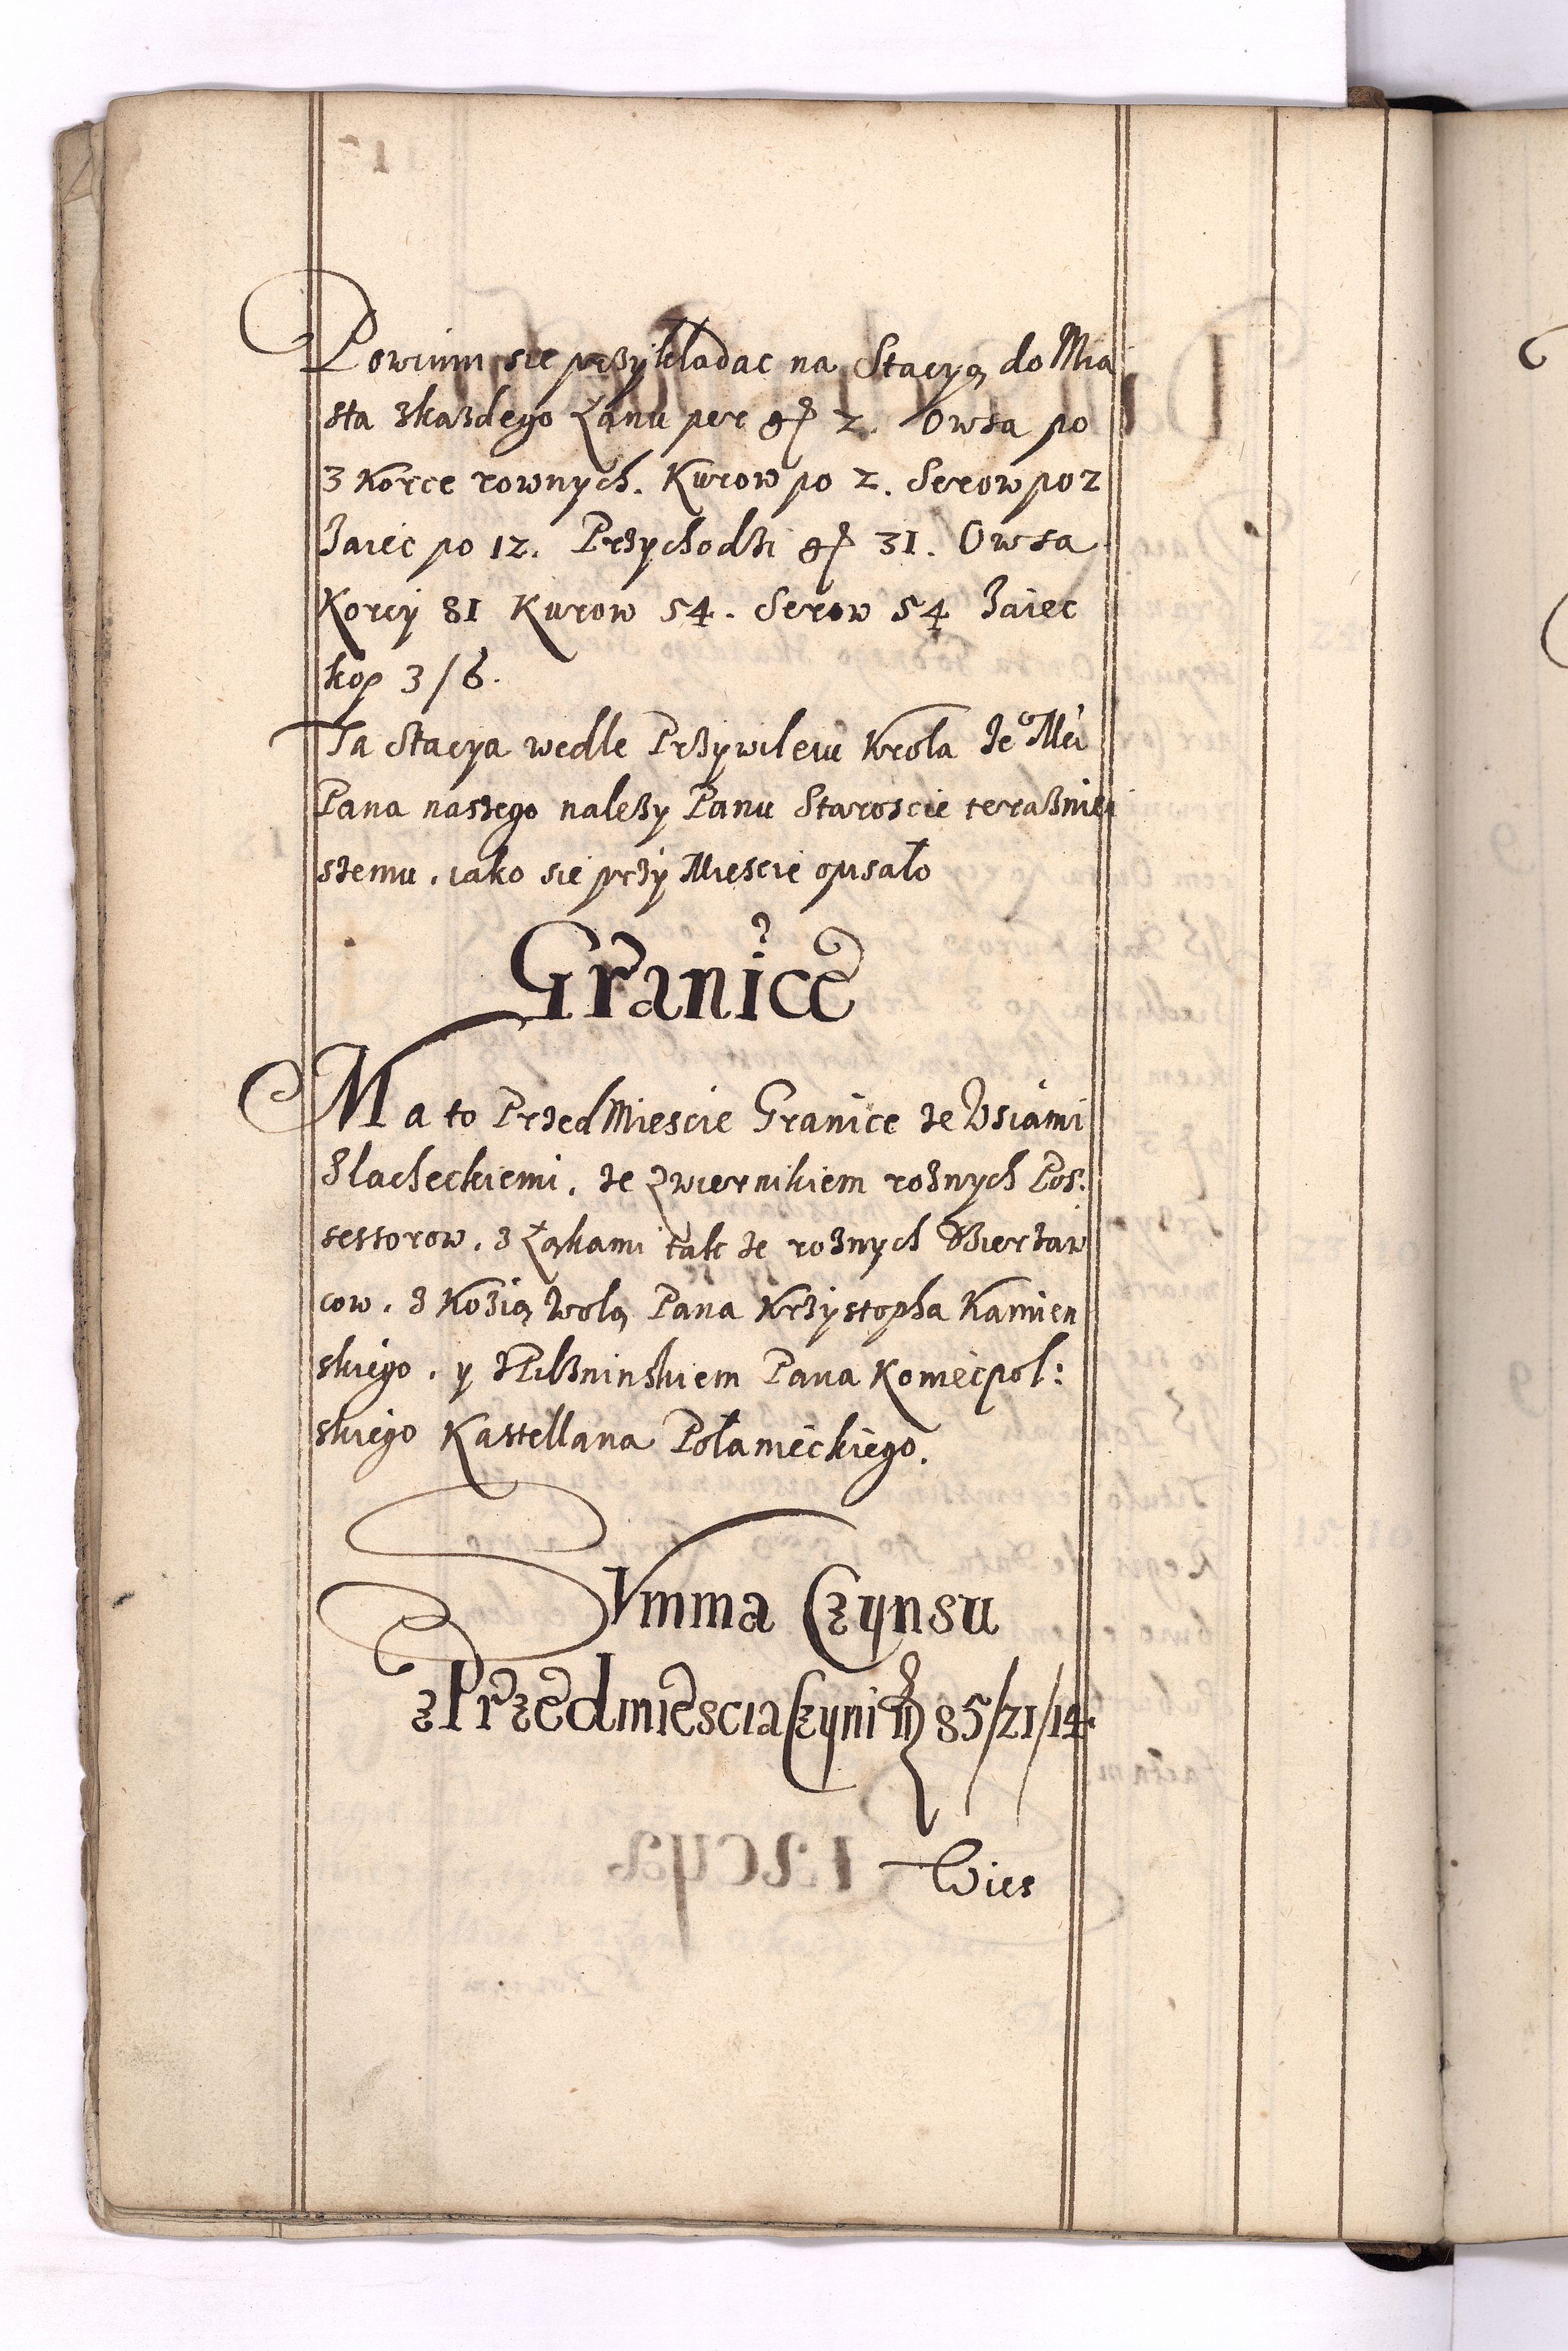 Powinni sie przykładac na Stacyą do Mia
sta zkazdego Łanu per gr 2. Owsa po
3 Korce rownych. Kurow po 2. Serow po 2
Jaiec po 12. Przychodzi gr 31. Owsa
Korcy 81 Kurow 54. Serow 54 Jaiec
kop 3/6.
Ta Stacya wedle Przywileiu Krola Je° Mći
Pana naszego nalezy Panu Staroscie teraznie
szemu, iako sie przy Miescie opisało
Granice
Ma to PrzedMiescie Granice ze Wsiami
Slacheckiemi, ze Zwiernikiem roznych Pos:
sessorow, z Łąkami tak ze roznych Dzierzaw
cow, z Kozią Wolą Pana Krzystopha Kamien
skiego, y z Pilzninskiem Pana Koniecpol:
skiego Kastellana Połanieckiego.
Summa Czynsu
z Przedmiescia Czyni 85/21/14.
Wies